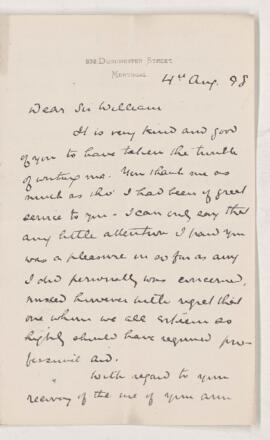 938 Dorchester Street
Montreal
4th Aug. 98
Dear Sir William
It is very kind and good
of you to have taken the trouble
of writing me. You thank me as
much as tho' I had been of great
service to you - I can only say that
any little attention I paid you
was a pleasure in so far as any
I did personally was concerned,
mixed however with regret that
one whom we all esteem as
highly should have required pro-
fessional aid.
With regard to your
recovery of the use of your arm